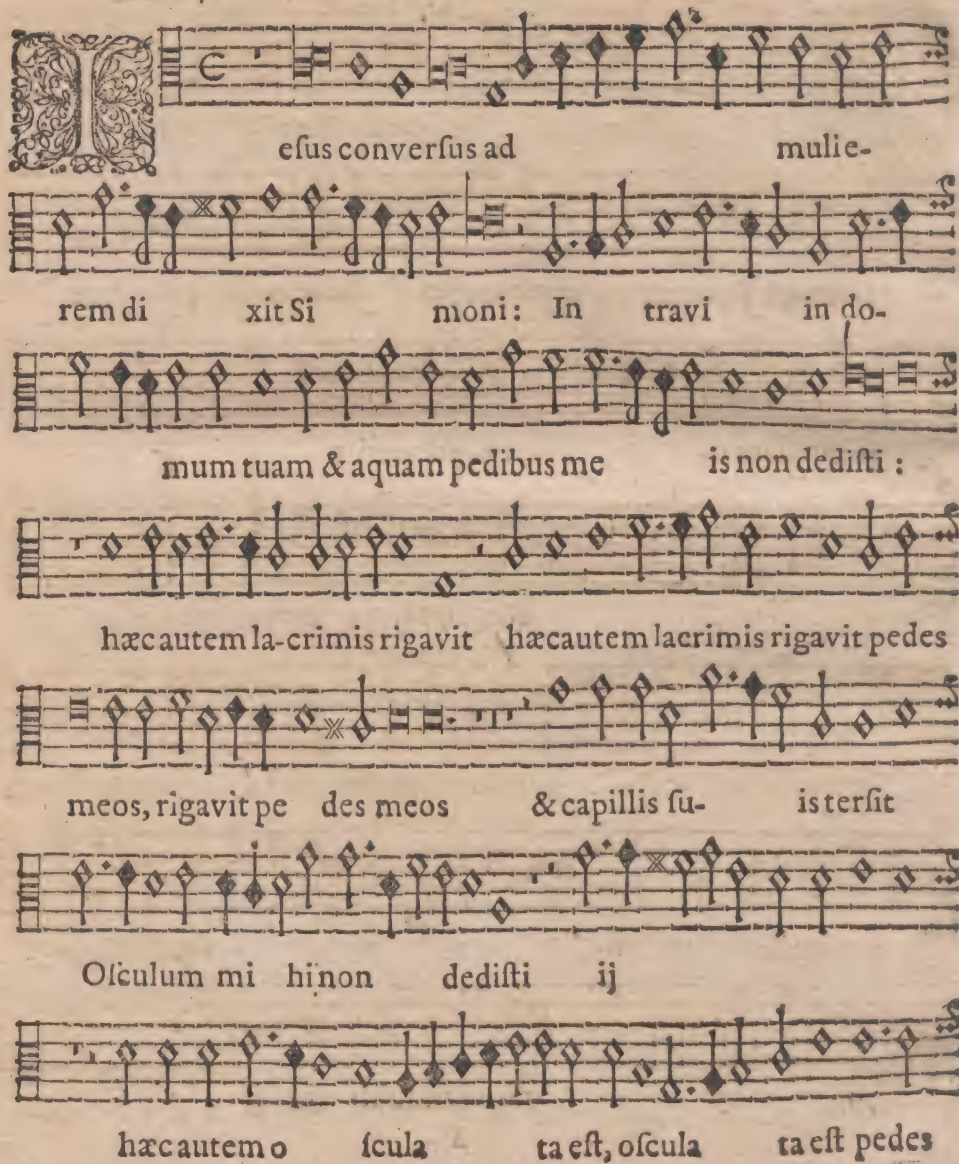 I
esus conversus ad mulie-
rem di xit Si moni: In travi in do-
mum tuam & aquam pedibus me is non dedisti :
hæc autem la-crimis rigavit hæc autem lacrimis rigavit pedes
meos, rigavit pe des meos & capillis su- is tersit
Osculum mi hi non dedisti ij
hæc autem o scula ta est, oscula ta est pedes